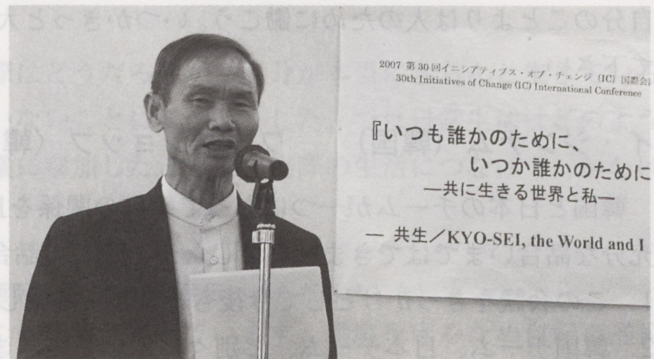 2007 第30回イニシアティブス・オブ・チェンジ (IC) 国際会
30th Initiatives of Change (IC) International Conference
『いつも誰かのために、
いつか誰かのために
―共に生きる世界と私―
― 共生／KYO-SEI, the World and I